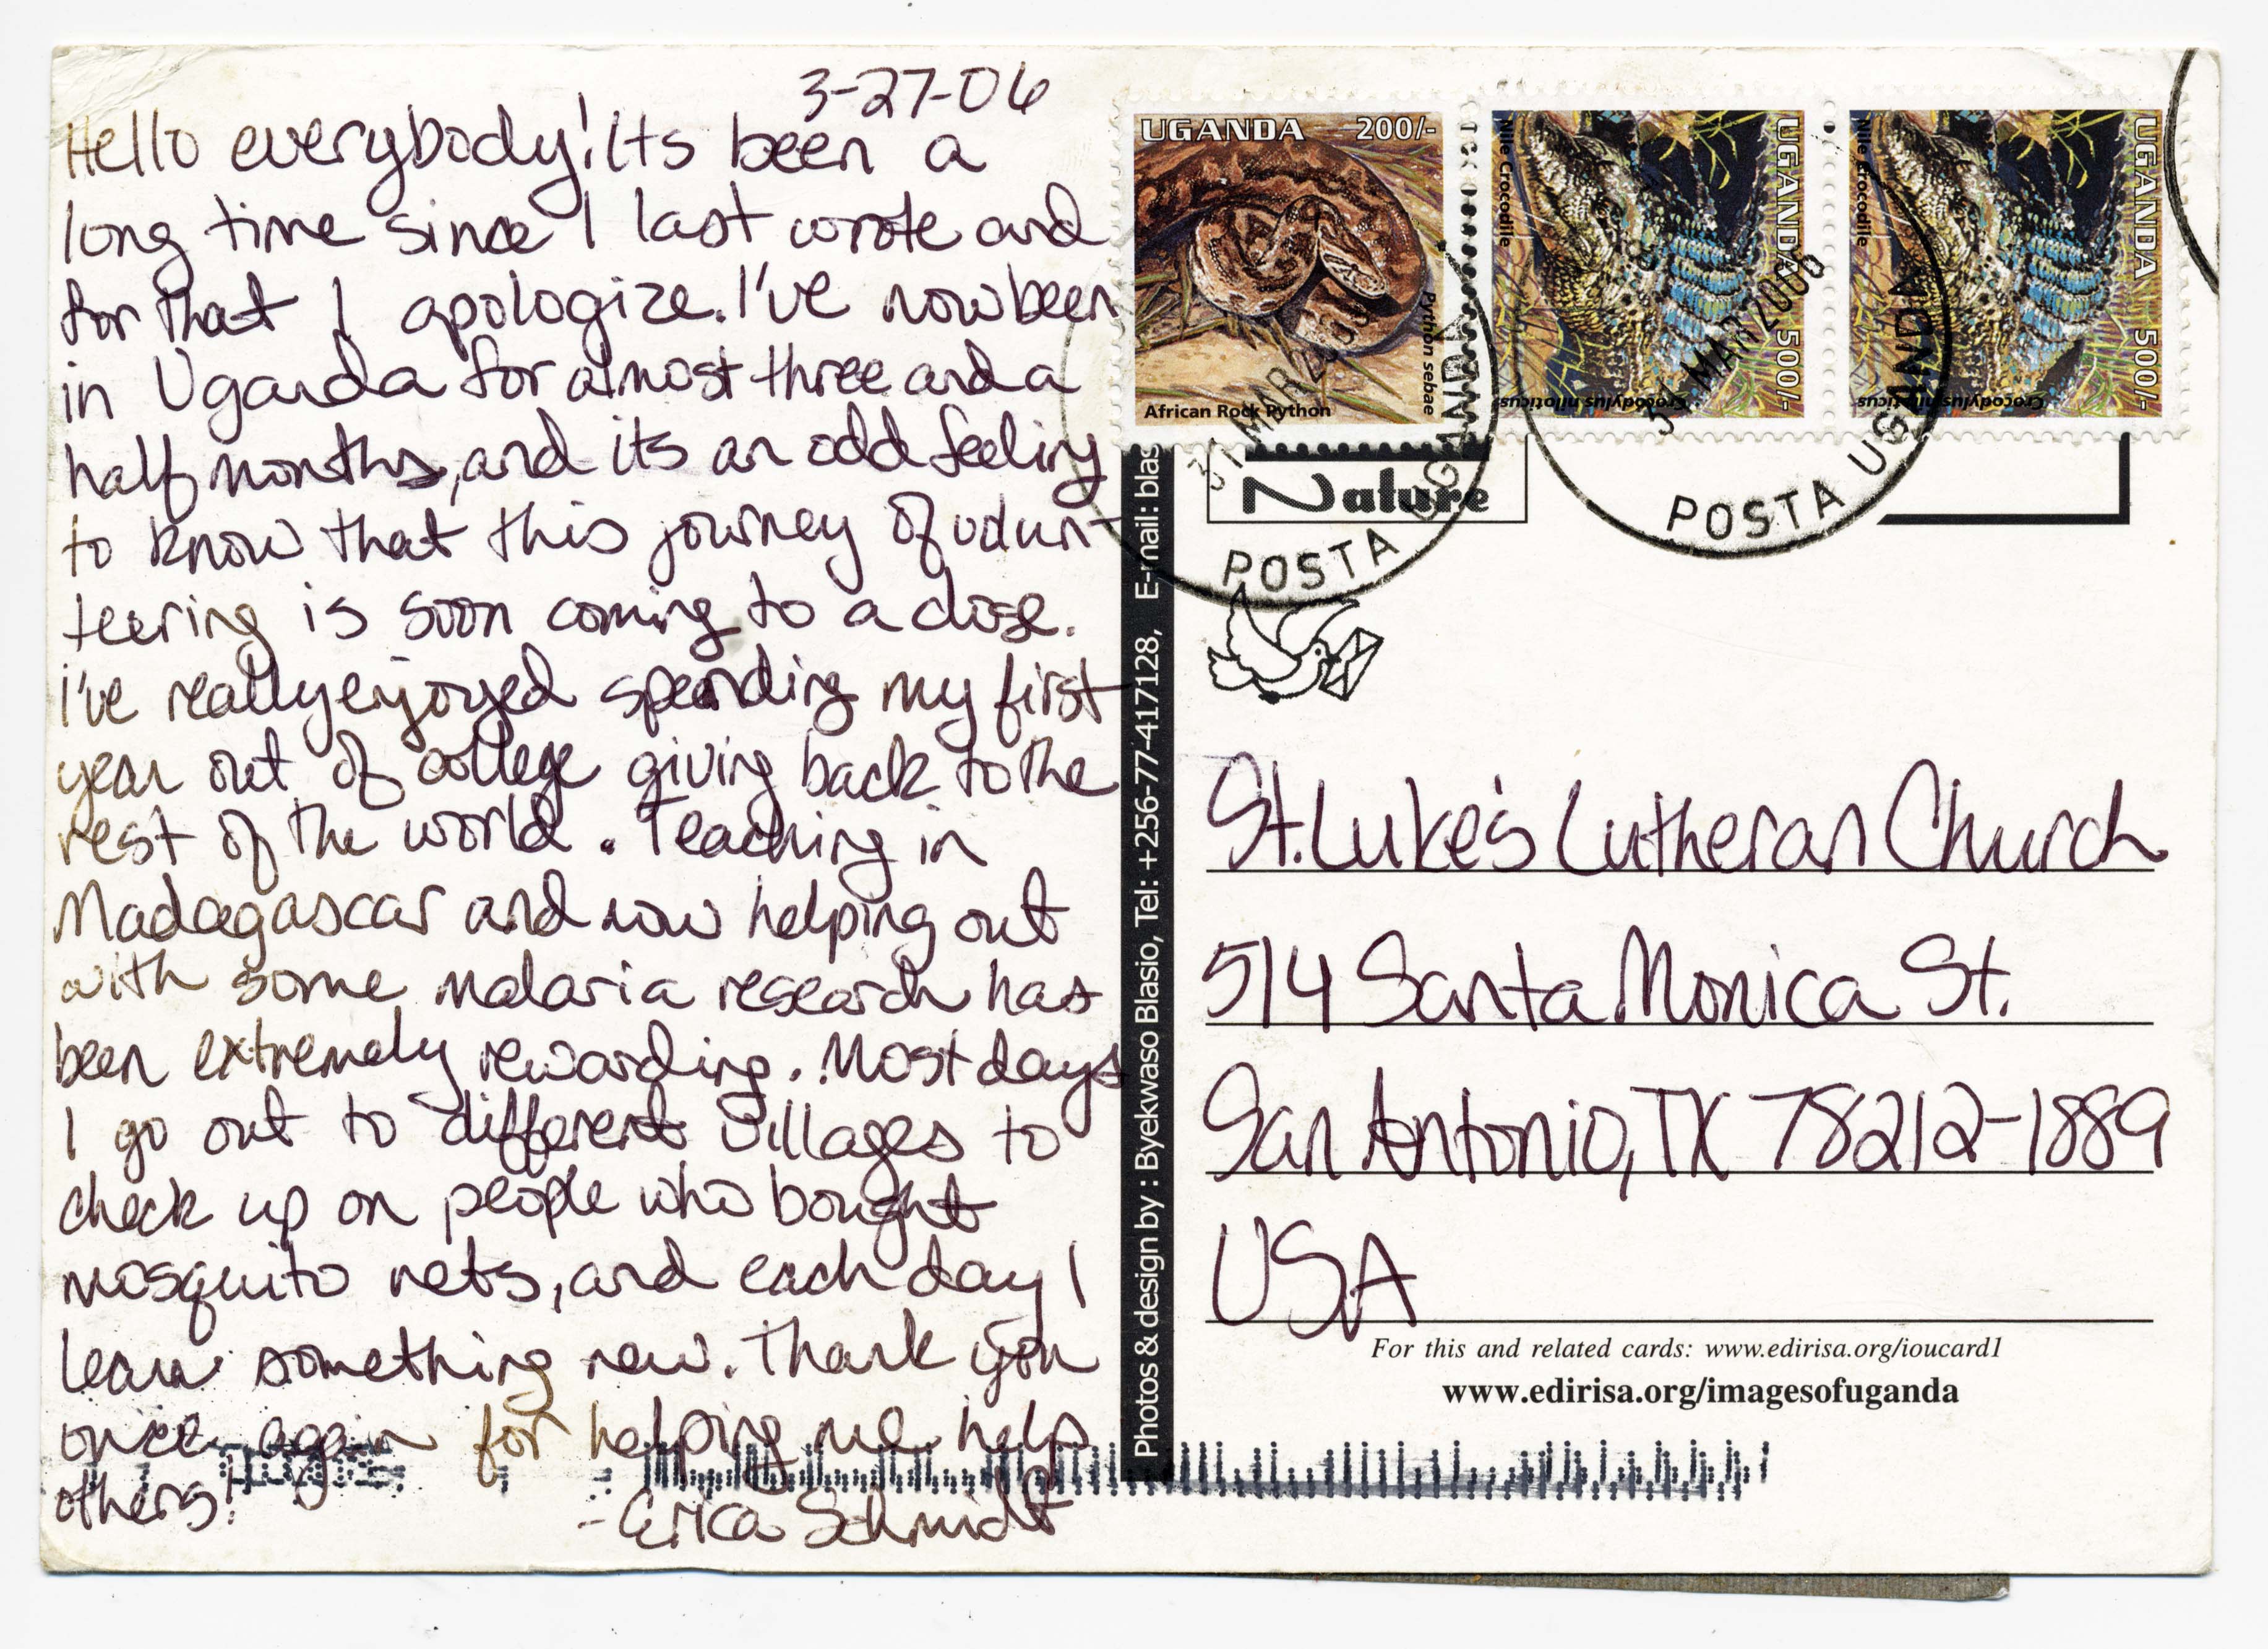 3-27-06
Hello everybody! Its been a
long time since I last wrote and
for that I apologize. I've now been
in Uganda for almost three and a
half months, and its an odd feeling
to know that this journey of volun-
teering is soon coming to a close.
I've really enjoyed spending my first
year out of college giving back to the
rest of the world. Teaching in
Madagascar and now helping out
with some malaria research has
been extremely rewarding. Most days
I go out to different villages to
check up on people who bought
mosquito nets, and each day I
learn something new. Thank you
once again for helping me help
others!
-Erica Schmidt
Photos & design by : Byekwaso Blasio, Tel: +256-77-417128, E-mail: blas
UGANDA 200/-
African Rock Python
Python sebae
UGANDA 500/-
Nile Crocodile
Crocodylus niloticus
UGANDA 500/-
Nile Crocodile
Crocodylus niloticus
31 MAR 2
POSTA UGANDA
31 MAR 2006
POSTA UGANDA
Nature
St. Luke's Lutheran Church
514 Santa Monica St.
San Antonio, TX 78212-1889
USA
For this and related cards: www.edirisa.org/ioucard1
www.edirisa.org/imagesofuganda